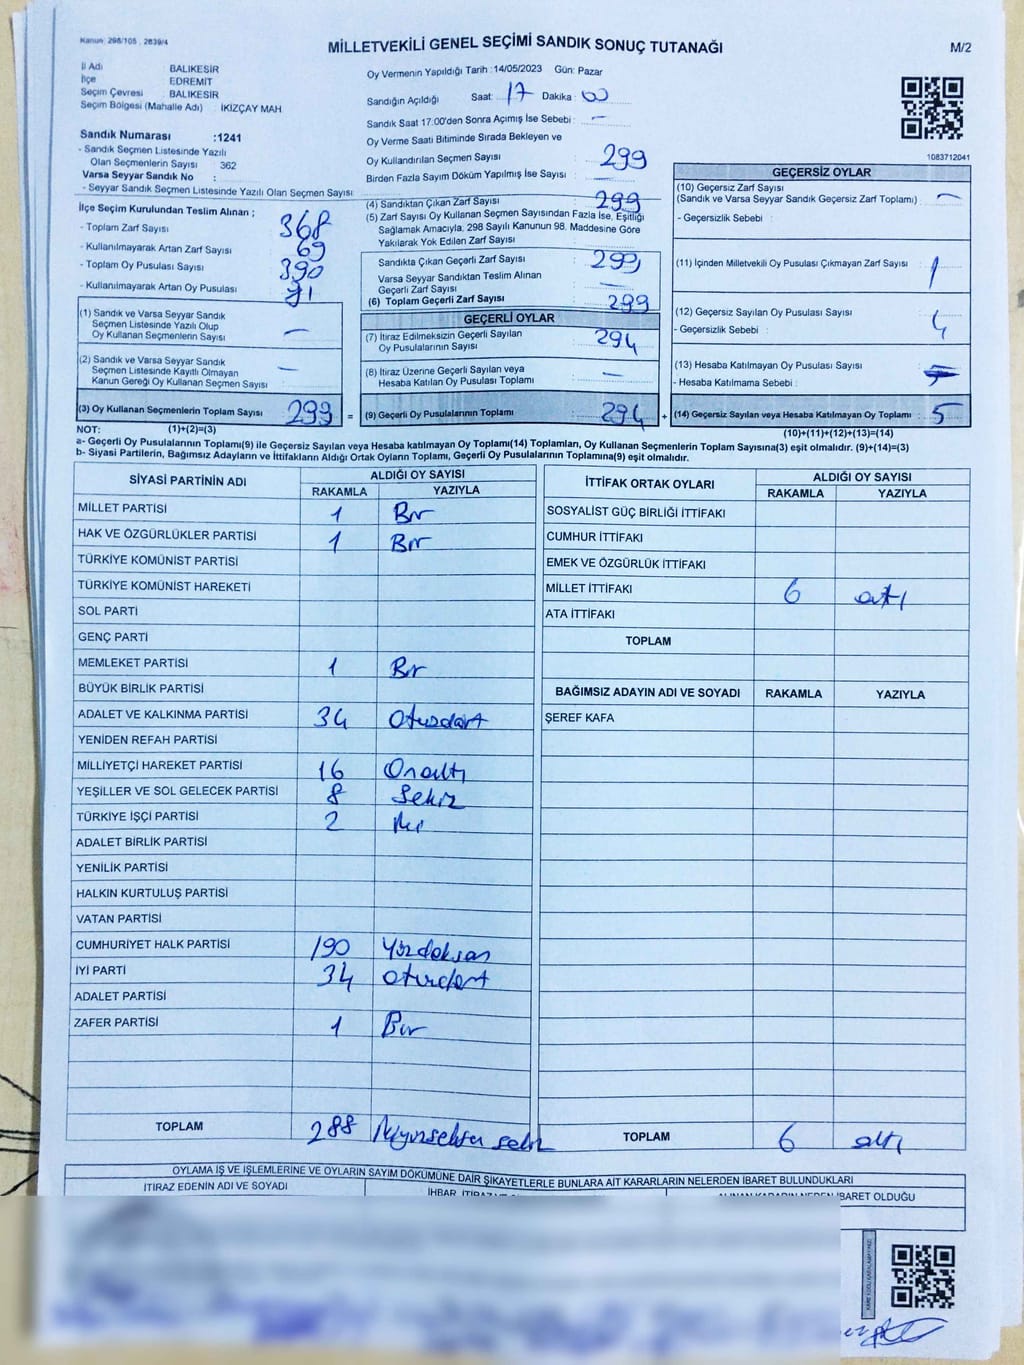 Kanun: 298/105 , 2839/4
MİLLETVEKİLİ GENEL SEÇİMİ SANDIK SONUÇ TUTANAĞI
M/2
İl Adı BALIKESİR
İlçe EDREMİT
Seçim Çevresi BALIKESİR
Seçim Bölgesi (Mahalle Adı) : İKİZÇAY MAH
Oy Vermenin Yapıldığı Tarih :14/05/2023 Gün: Pazar
Sandığın Açıldığı Saat: 17 Dakika : 00
Sandık Saat 17:00'den Sonra Açımış İse Sebebi : -
Oy Verme Saati Bitiminde Sırada Bekleyen ve
Oy Kullandırılan Seçmen Sayısı : 299
Birden Fazla Sayım Döküm Yapılmış İse Sayısı : -
Sandık Numarası :1241
- Sandık Seçmen Listesinde Yazılı
Olan Seçmenlerin Sayısı 362
Varsa Seyyar Sandık No :
- Seyyar Sandık Seçmen Listesinde Yazılı Olan Seçmen Sayısı
1083712041
İlçe Seçim Kurulundan Teslim Alınan ;
- Toplam Zarf Sayısı : 368
- Kullanılmayarak Artan Zarf Sayısı : 69
- Toplam Oy Pusulası Sayısı : 390
- Kullanılmayarak Artan Oy Pusulası : 91
(1) Sandık ve Varsa Seyyar Sandık
Seçmen Listesinde Yazılı Olup
Oy Kullanan Seçmenlerin Sayısı : -
(2) Sandık ve Varsa Seyyar Sandık
Seçmen Listesinde Kayıtlı Olmayan
Kanun Gereği Oy Kullanan Seçmen Sayısı : -
(3) Oy Kullanan Seçmenlerin Toplam Sayısı : 299 =
(4) Sandıktan Çıkan Zarf Sayısı : 299
(5) Zarf Sayısı Oy Kullanan Seçmen Sayısından Fazla İse, Eşitliği
Sağlamak Amacıyla, 298 Sayılı Kanunun 98. Maddesine Göre
Yakılarak Yok Edilen Zarf Sayısı :
Sandıkta Çıkan Geçerli Zarf Sayısı : 299
Varsa Seyyar Sandıktan Teslim Alınan
Geçerli Zarf Sayısı : -
(6) Toplam Geçerli Zarf Sayısı : 299
GEÇERLİ OYLAR
(7) İtiraz Edilmeksizin Geçerli Sayılan
Oy Pusulalarının Sayısı : 294
(8) İtiraz Üzerine Geçerli Sayılan veya
Hesaba Katılan Oy Pusulası Toplamı : -
(9) Geçerli Oy Pusulalarının Toplamı : 294 +
GEÇERSİZ OYLAR
(10) Geçersiz Zarf Sayısı
(Sandık ve Varsa Seyyar Sandık Geçersiz Zarf Toplamı) : -
- Geçersizlik Sebebi :
(11) İçinden Milletvekili Oy Pusulası Çıkmayan Zarf Sayısı : 1
(12) Geçersiz Sayılan Oy Pusulası Sayısı : 4
- Geçersizlik Sebebi :
(13) Hesaba Katılmayan Oy Pusulası Sayısı :
- Hesaba Katılmama Sebebi :
(14) Geçersiz Sayılan veya Hesaba Katılmayan Oy Toplamı : 5
NOT: (1)+(2)=(3) (10)+(11)+(12)+(13)=(14)
a- Geçerli Oy Pusulalarının Toplamı(9) ile Geçersiz Sayılan veya Hesaba katılmayan Oy Toplamı(14) Toplamları, Oy Kullanan Seçmenlerin Toplam Sayısına(3) eşit olmalıdır. (9)+(14)=(3)
b- Siyasi Partilerin, Bağımsız Adayların ve İttifakların Aldığı Ortak Oyların Toplamı, Geçerli Oy Pusulalarının Toplamına(9) eşit olmalıdır.
SİYASİ PARTİNİN ADI ALDIĞI OY SAYISI
RAKAMLA YAZIYLA
MİLLET PARTİSİ 1 Bir
HAK VE ÖZGÜRLÜKLER PARTİSİ 1 Bir
TÜRKİYE KOMÜNİST PARTİSİ
TÜRKİYE KOMÜNİST HAREKETİ
SOL PARTİ
GENÇ PARTİ
MEMLEKET PARTİSİ 1 Bir
BÜYÜK BİRLİK PARTİSİ
ADALET VE KALKINMA PARTİSİ 34 Otuzdört
YENİDEN REFAH PARTİSİ
MİLLİYETÇİ HAREKET PARTİSİ 16 Onaltı
YEŞİLLER VE SOL GELECEK PARTİSİ 8 Sekiz
TÜRKİYE İŞÇİ PARTİSİ 2 iki
ADALET BİRLİK PARTİSİ
YENİLİK PARTİSİ
HALKIN KURTULUŞ PARTİSİ
VATAN PARTİSİ
CUMHURİYET HALK PARTİSİ 190 Yüzdoksan
İYİ PARTİ 34 otuzdört
ADALET PARTİSİ
ZAFER PARTİSİ 1 Bir
TOPLAM 288 İkiyüzseksen sekiz
İTTİFAK ORTAK OYLARI ALDIĞI OY SAYISI
RAKAMLA YAZIYLA
SOSYALİST GÜÇ BİRLİĞİ İTTİFAKI
CUMHUR İTTİFAKI
EMEK VE ÖZGÜRLÜK İTTİFAKI
MİLLET İTTİFAKI 6 altı
ATA İTTİFAKI
TOPLAM
BAĞIMSIZ ADAYIN ADI VE SOYADI RAKAMLA YAZIYLA
ŞEREF KAFA
TOPLAM 6 altı
OYLAMA İŞ VE İŞLEMLERİNE VE OYLARIN SAYIM DÖKÜMÜNE DAİR ŞİKAYETLERLE BUNLARA AİT KARARLARIN NELERDEN İBARET BULUNDUKLARI
İTİRAZ EDENİN ADI VE SOYADI
İBARET OLDUĞU